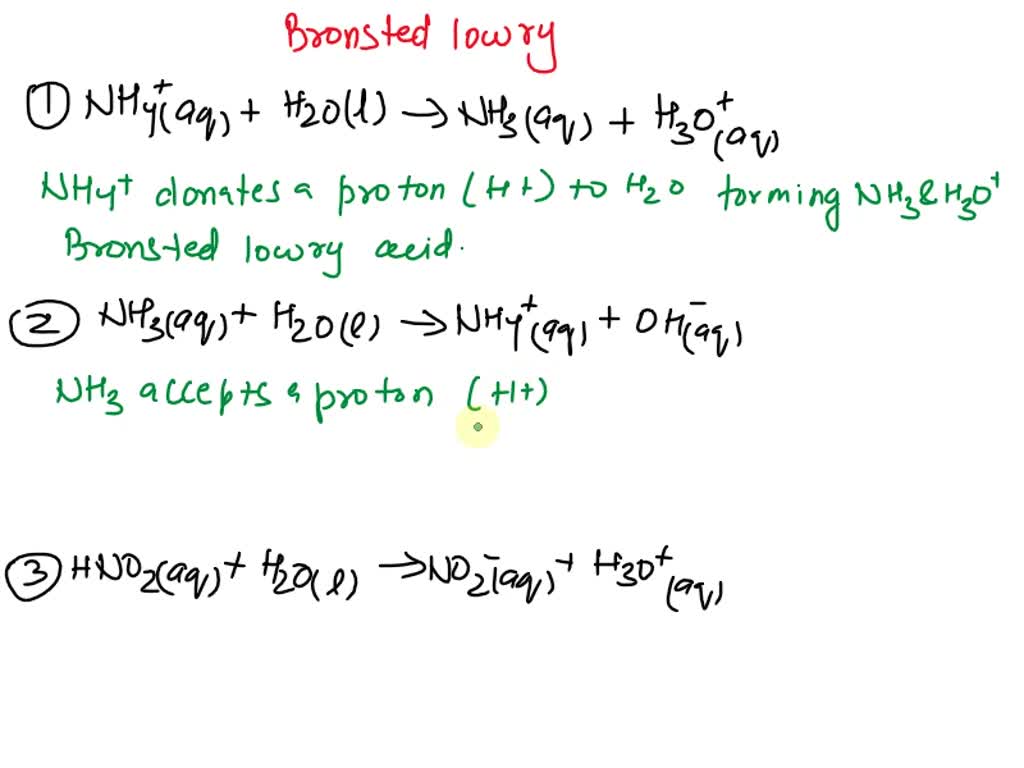 Bronsted lowry
① NH4⁺(aq) + H2O(l) → NH3(aq) + H3O⁺(aq)
NH4⁺ donates a proton (H+) to H2O forming NH3 & H3O⁺
Bronsted lowry acid.
② NH3(aq) + H2O(l) → NH4⁺(aq) + OH⁻(aq)
NH3 accepts a proton (H+)
③ HNO2(aq) + H2O(l) → NO2⁻(aq) + H3O⁺(aq)